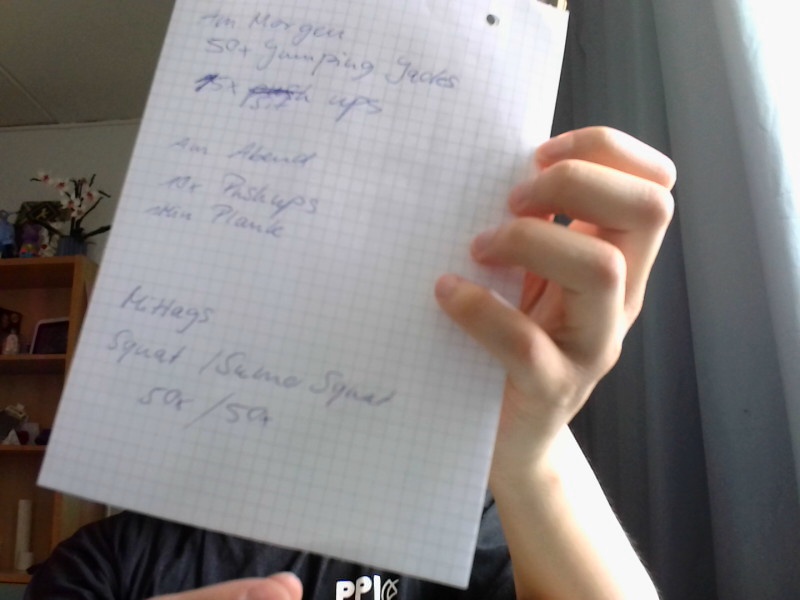 Am Morgen
50x Jumping Jacks
15x Sit ups
Am Abend
10x Pushups
1 Min Plank
Mittags
Squat / Sumo Squat
50x / 50x
PPI